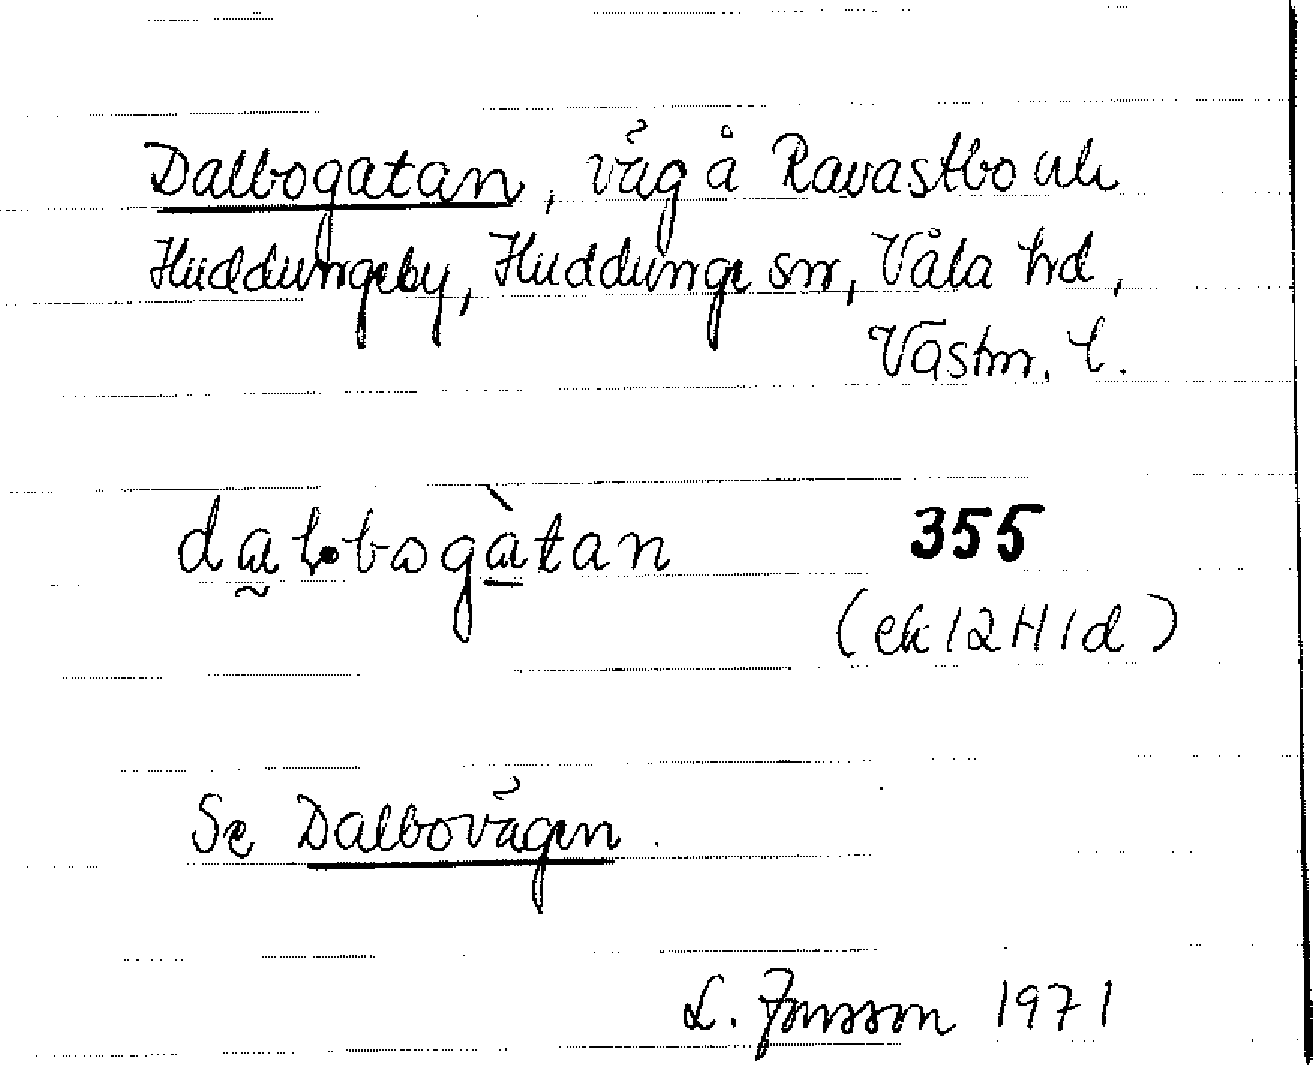 Dalbogatan, väg å Ravastbo och
Huddungeby, Huddunge sn, Våla hd,
Västm. l.
dal·bogàtan 355
(ek 12H1d)
Se Dalbovägen.
L. Jonsson 1971